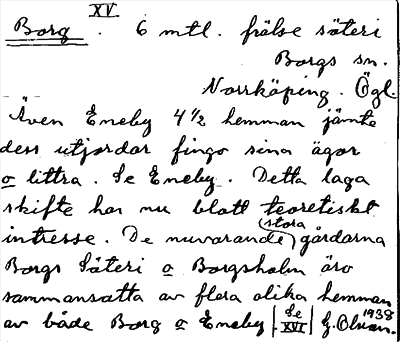 Borg . XV 6 mtl. frälse säteri
Borgs sn.
Norrköping. Ögl.
Även Eneby 4 1/2 hemman jämte
dess utjordar fingo sina ägor
o littra. Se Eneby. Detta laga
skifte har nu blott teoretiskt
intresse. De nuvarande (stora) gårdarna
Borgs Säteri o Borgsholm äro
sammansatta av flera olika hemman
av både Borg o Eneby | Se XVI | G. Olsson. 1938